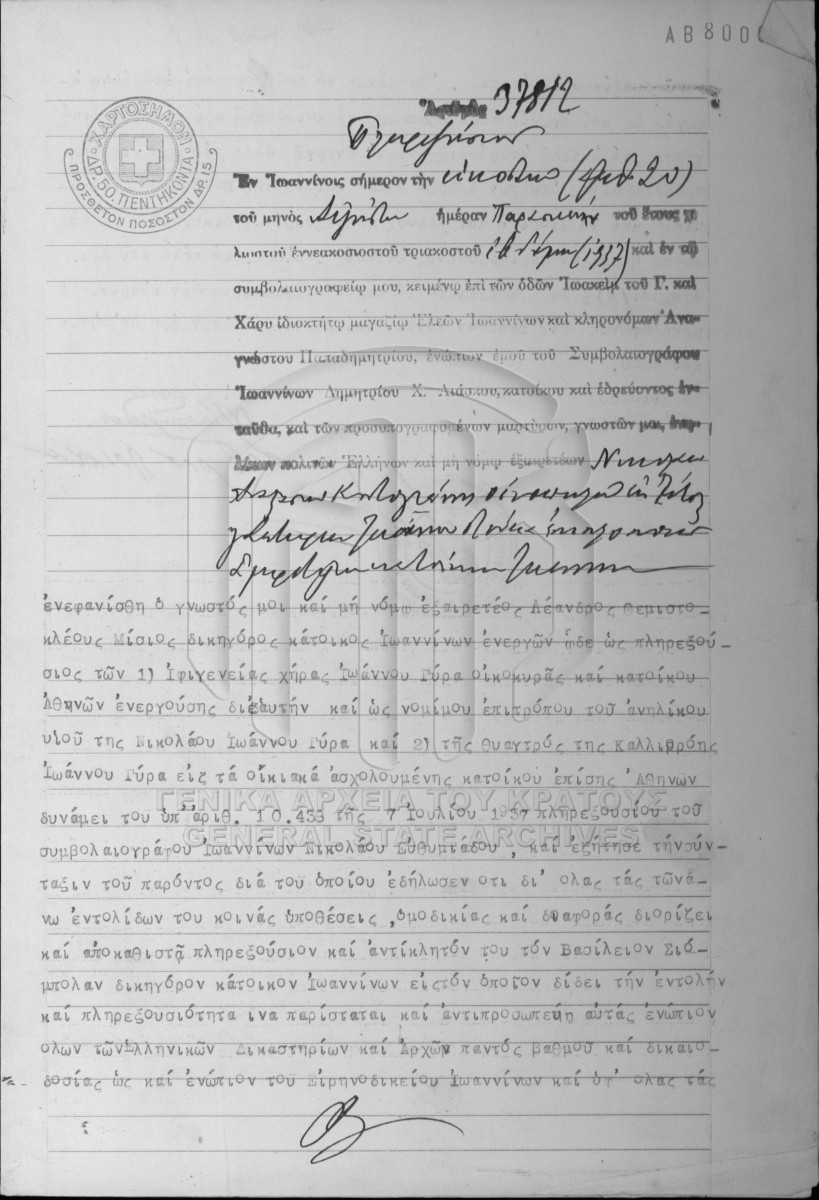 ΑΒ 800
ΧΑΡΤΟΣΗΜΟΝ
ΔΡ. 50. ΠΕΝΤΗΚΟΝΤΑ
ΠΡΟΣΘΕΤΟΝ ΠΟΣΟΣΤΟΝ ΔΡ. 15
Ἀριθμὸς 37812
Πληρεξούσιον
Ἐν Ἰωαννίνοις σήμερον τὴν εἰκοστὴν (ἀριθ. 20)
τοῦ μηνὸς Αὐγούστου ἡμέραν Παρασκευὴν τοῦ ἔτους χι
λιοστοῦ ἐννεακοσιοστοῦ τριακοστοῦ ἑβδόμου (1937) καὶ ἐν τῷ
συμβολαιογραφείῳ μου, κειμένῳ ἐπὶ τῶν ὁδῶν Ἰωακεὶμ τοῦ Γ. καὶ
Χάρυ ἰδιοκτήτῳ μαγαζίῳ Ἐλεῶν Ἰωαννίνων καὶ κληρονόμων Ἀνα-
γνώστου Παπαδημητρίου, ἐνώπιον ἐμοῦ τοῦ Συμβολαιογράφου
Ἰωαννίνων Δημητρίου Χ. Λιάσκου, κατοίκου καὶ ἑδρεύοντος ἐν-
ταῦθα, καὶ τῶν προσυπογραφομένων μαρτύρων, γνωστῶν μοι, ἐνη-
λίκων πολιτῶν Ἑλλήνων καὶ μὴ νόμῳ ἐξαιρετέων
ἐνεφανίσθη ὁ γνωστός μοι καί μή νόμῳ ἐξαιρετέος Λέανδρος Θεμιστο-
κλέους Μίσιος δικηγόρος κάτοικος Ἰωαννίνων ἐνεργῶν ἤδε ὡς πληρεξού-
σιος τῶν 1) Ἰφιγενείας χήρας Ἰωάννου Γύρα οἰκοκυρᾶς καί κατοίκου
Ἀθηνῶν ἐνεργούσης δι᾽ἑαυτήν καί ὡς νομίμου ἐπιτρόπου τοῦ ἀνηλίκου
υἱοῦ της Νικολάου Ἰωάννου Γύρα καί 2) τῆς θυατρός της Καλλιρρόης
Ἰωάννου Γύρα εἰς τά οἰκιακά ἀσχολουμένης κατοίκου ἐπίσης Ἀθηνων
ΓΕΝΙΚΑ ΑΡΧΕΙΑ ΤΟΥ ΚΡΑΤΟΥΣ
δυνάμει του ὑπ᾽ἀριθ. 10.433 τῆς 7 Ἰουλίου 1937 πληρεξουσίου τοῦ
GENERAL STATE ARCHIVES
συμβολαιογράφου Ἰωαννίνων Νικολάου Εὐθυμιάδου, καί ἐζήτησε τήν σύν-
ταξιν τοῦ παρόντος διά τοῦ ὁποίου ἐδήλωσεν οτι δι᾽ ολας τάς τῶν ἀ-
νω ἐντολίδων του κοινάς ὑποθέσεις ,ὁμοδικίας καί διαφοράς διορίζει
καί ἀποκαθιστᾷ πληρεξούσιον καί ἀντίκλητόν του τόν Βασίλειον Σιό-
μπολαν δικηγόρον κάτοικον Ἰωαννίνων εἰς τόν ὁποῖον δίδει τήν ἐντολήν
καί πληρεξουσιότητα ινα παρίσταται καί ἀντιπροσωπεύῃ αὐτάς ἐνώπιον
ολων τῶν Ἑλληνικῶν Δικαστηρίων καί Ἀρχῶν παντός βαθμοῦ καί δικαιο-
δοσίας ὡς καί ἐνώπιον τοῦ Εἰρηνοδικείου Ἰωαννίνων καί ὑφ᾽ ολας τάς